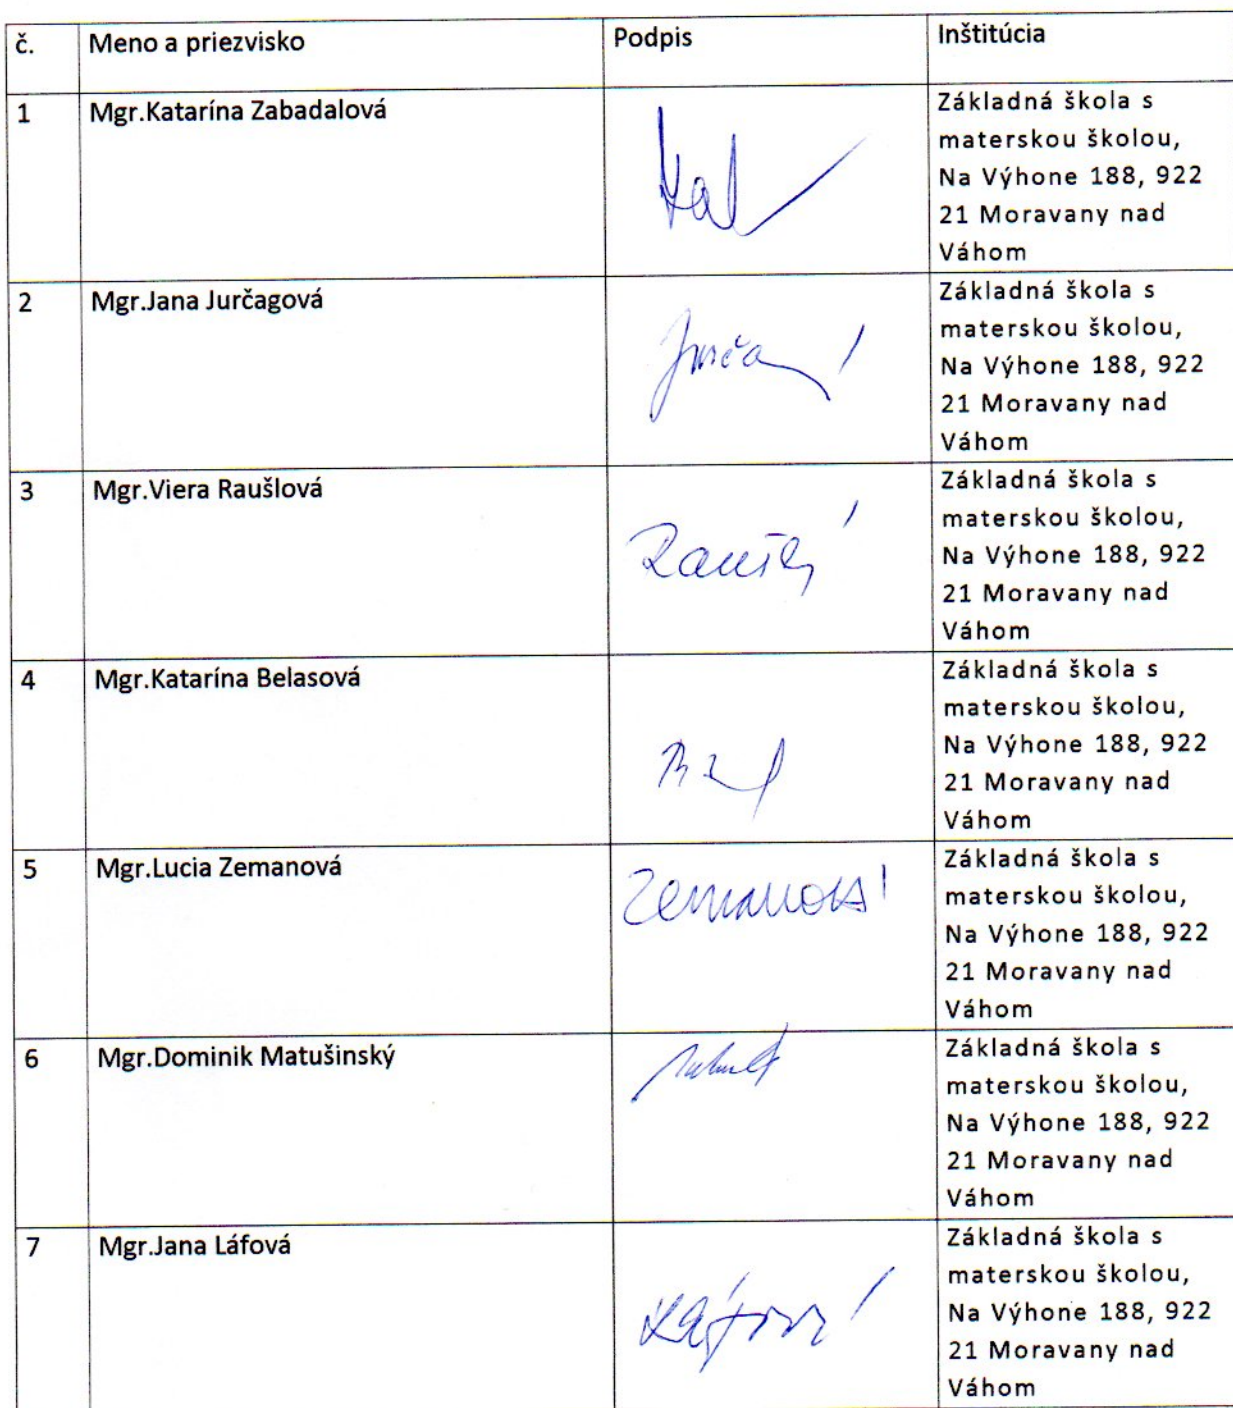 č. Meno a priezvisko Podpis Inštitúcia
1 Mgr.Katarína Zabadalová Základná škola s
materskou školou,
Na Výhone 188, 922
21 Moravany nad
Váhom
2 Mgr.Jana Jurčagová Základná škola s
materskou školou,
Na Výhone 188, 922
21 Moravany nad
Váhom
3 Mgr.Viera Raušlová Základná škola s
materskou školou,
Na Výhone 188, 922
21 Moravany nad
Váhom
4 Mgr.Katarína Belasová Základná škola s
materskou školou,
Na Výhone 188, 922
21 Moravany nad
Váhom
5 Mgr.Lucia Zemanová Zemanová Základná škola s
materskou školou,
Na Výhone 188, 922
21 Moravany nad
Váhom
6 Mgr.Dominik Matušinský Základná škola s
materskou školou,
Na Výhone 188, 922
21 Moravany nad
Váhom
7 Mgr.Jana Láfová Základná škola s
materskou školou,
Na Výhone 188, 922
21 Moravany nad
Váhom